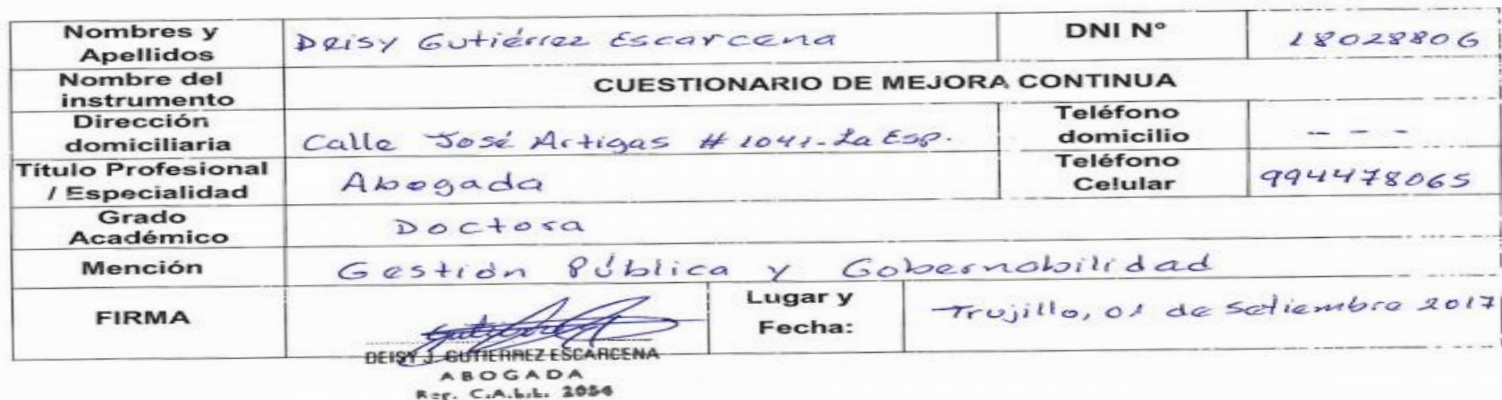 Nombres y Apellidos Deisy Gutiérrez Escarcena DNI N° 18028806
Nombre del instrumento CUESTIONARIO DE MEJORA CONTINUA
Dirección domiciliaria Calle José Artigas # 1041-La Esp. Teléfono domicilio - - -
Título Profesional / Especialidad Abogada Teléfono Celular 994478065
Grado Académico Doctora
Mención Gestión Pública y Gobernabilidad
FIRMA Lugar y Fecha: Trujillo, 01 de Setiembre 2017
DEISY J. GUTIERREZ ESCARCENA
ABOGADA
Reg. C.A.L.L. 2054